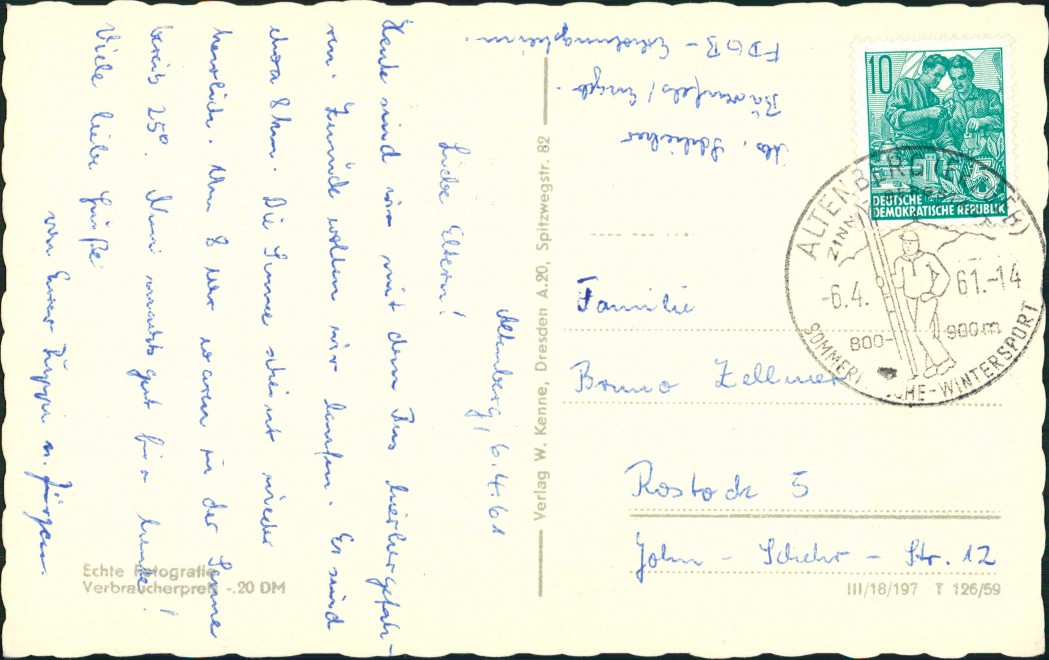 Altenberg, 6.4.61
Liebe Eltern!
Heute sind wir mit dem Bus hierhergefah-
ren. Zurück wollen wir laufen. Es sind
etwa 8 km. Die Sonne scheint wieder
herrlich. Um 8 Uhr waren in der Sonne
bereits 25°. Nun macht's gut für heute!
Viele liebe Grüße
von Eurer u. Jürgen.
Echte Fotografie
Verbraucherpreis -.20 DM
Verlag W. Kenne, Dresden A.20, Spitzwegstr. 82
Abs.
Bärenfels/Erzgeb.
FDGB-Erholungsheim.
10
5
DEUTSCHE
DEMOKRATISCHE REPUBLIK
ALTENBERG (ERZGEB)
-6.4.61.-14
800-900m
SOMMERFRISCHE-WINTERSPORT
Familie
Bruno Zellmer
Rostock 5
John-Schehr-Str. 12
III/18/197 T 126/59